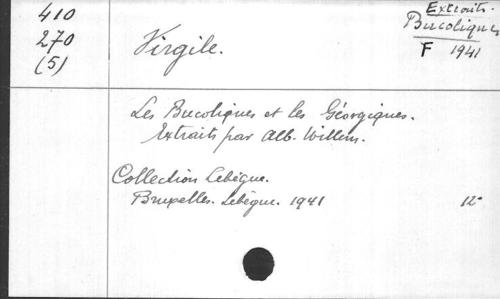 410
270
(5)
Virgile.
Extraits.
Bucoliques
F 1941
Les Bucoliques et les Géorgiques.
Extraits par Alb. Willem.
Collection Lebègue.
Bruxelles. Lebègue. 1941 12°